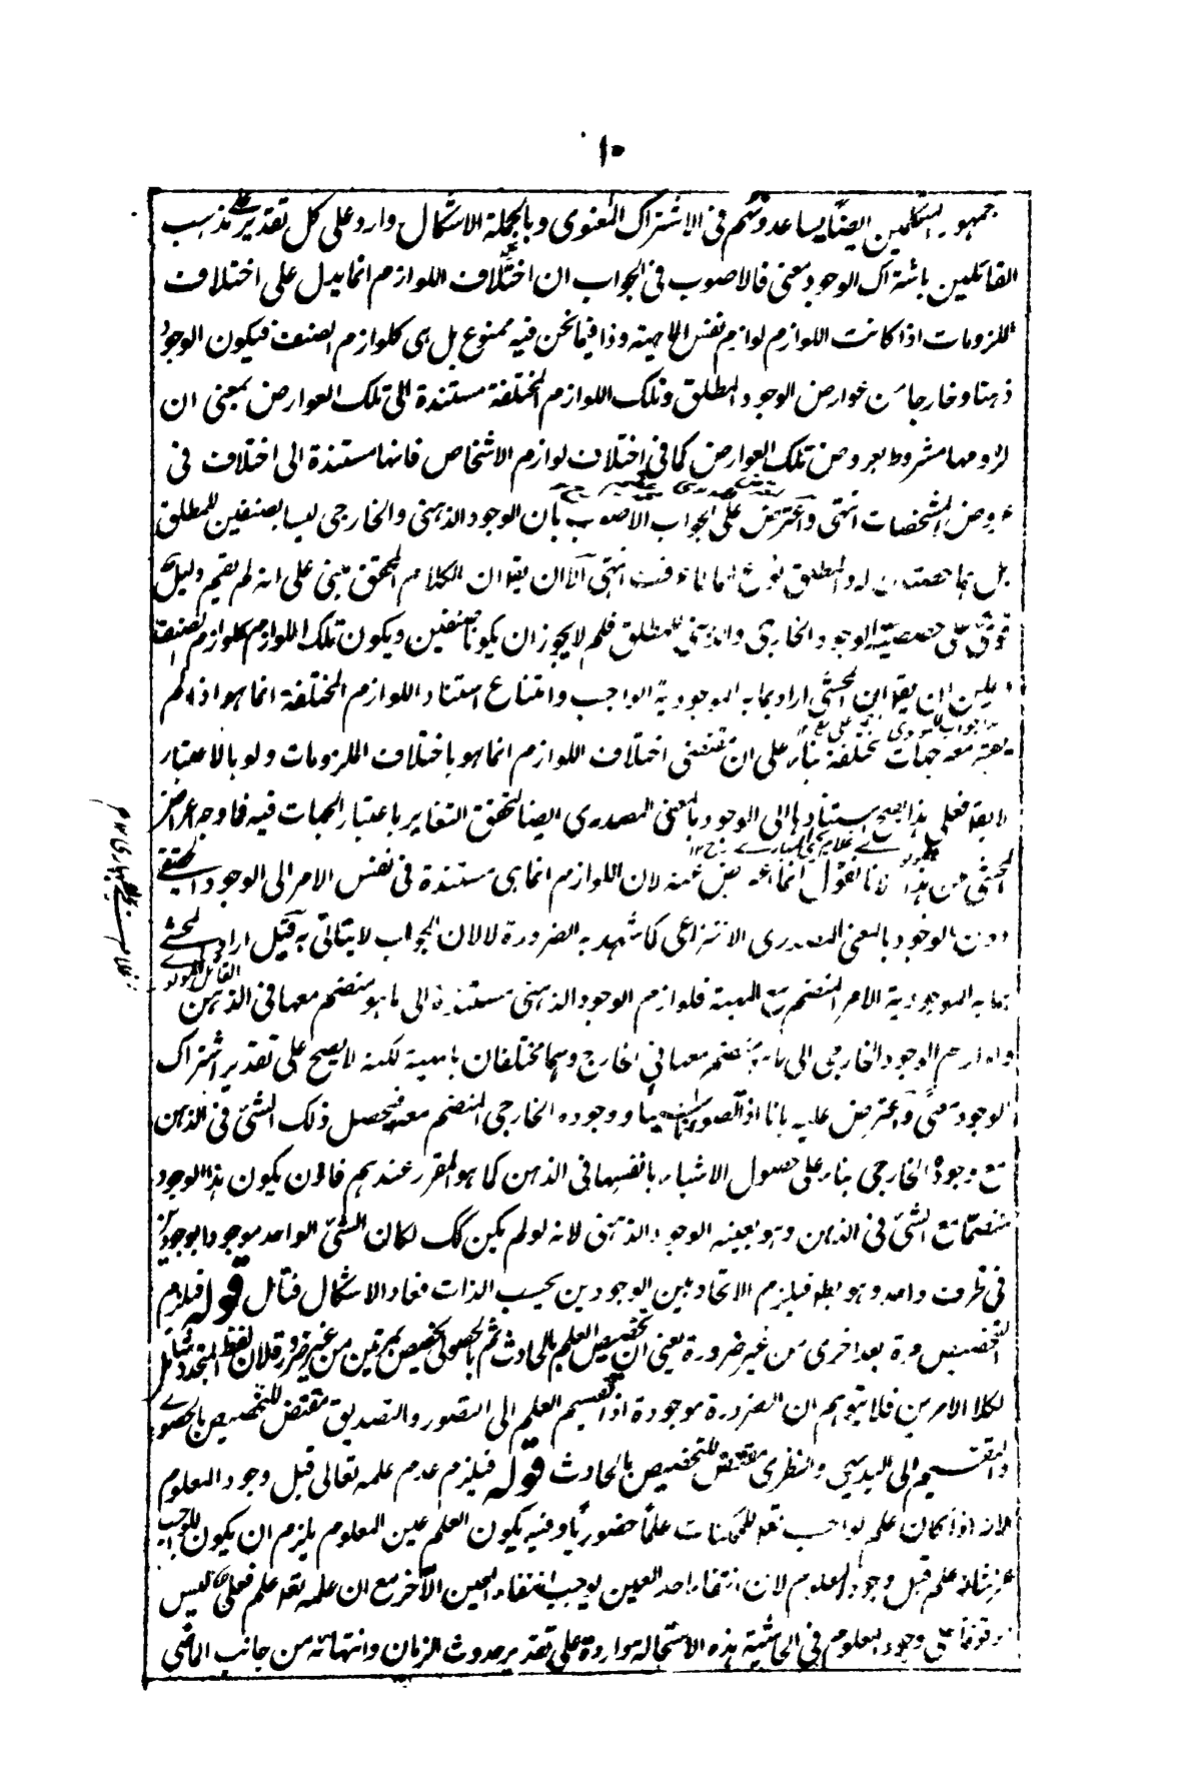 ١٠
جمهور المتكلمين ايضا يساعدونهم فى الاشتراك المعنوى وبالجملة الاشكال وارد على كل تقدير على مذهب
القائلين باشتراك الوجود معنى فالاصوب فى الجواب ان اختلاف اللوازم انما يدل على اختلاف
الملزومات اذا كانت اللوازم لوازم نفس الماهية وذا فيما نحن فيه ممنوع بل هى كلوازم الصنف فيكون الوجود
ذهنا وخارجا من عوارض الوجود المطلق وتلك اللوازم المختلفة مستندة الى تلك العوارض بمعنى ان
لزومها مشروط بعروض تلك العوارض كما فى اختلاف لوازم الاشخاص فانها مستندة الى اختلاف فى
عروض المشخصات انتهى واعترض على الجواب الاصوب بان الوجود الذهنى والخارجى ليسا بصنفين للمطلق
بل هما حصتان له والمطلق نوع لهما كما عرفت انتهى الا ان يقا ان الكلام المحقق مبنى على انه لم يقم دليل
على حصصية الوجود الخارجى والذهنى للمطلق فلم لا يجوز ان يكونا صنفين ويكون تلك اللوازم كلوازم الصنف
ويمكن ان يقا ان المحشى اراد بما به الموجودية الواجب وامتناع استناد اللوازم المختلفة انما هو اذا لم
يعتبر معه جهات مختلفة بناء على ان مقتضى اختلاف اللوازم انما هو باختلاف الملزومات ولو بالاعتبار
لا يقا فعلى هذا يصح استنادها الى الوجود بالمعنى المصدرى ايضا لتحقق التغاير باعتبار الجهات فيه فما وجه اعراض
المحشى عن هذا لانا نقول انما اعرض عنه لان اللوازم انما هى مستندة فى نفس الامر الى الوجود الحقيقى
دون الوجود بالمعنى المصدرى الانتزاعى كما شهد به الضرورة لا لان الجواب لا يتاتى به قيل اراد المحشى
بما به الموجودية الامر المنضم مع المهية فلوازم الوجود الذهنى مستندة الى ما هو منضم معها فى الذهن
ولوازم الوجود الخارجى الى ما هو منضم معها فى الخارج وهما مختلفان بالمهية لكنه لا يصح على تقدير اشتراك
الوجود معنى واعترض عليه بانا اذا تصورنا شيئا ووجوده الخارجى المنضم معه فيحصل ذلك الشئ فى الذهن
مع وجوده الخارجى بناء على حصول الاشياء بانفسها فى الذهن كما هو المقرر عندهم فاذن يكون هذا الوجود
منضما مع الشئ فى الذهن وهو بعينه الوجود الذهنى لانه لو لم يكن كك لكان الشئ الواحد موجودا بوجودين
فى ظرف واحد وهو بط فيلزم الاتحاد بين الوجودين بحسب الذات فعاد الاشكال فتامل قوله فيلزم
التخصيص مرة بعد اخرى من غير ضرورة يعنى ان تخصيص العلم بالحادث ثم بالحصولى تخصيص بمرتين من غير ضرورة لان لفظ المتجدد شامل
لكلا الامرين فلا يتوهم ان الضرورة موجودة اذ تقسيم العلم الى التصور والتصديق مقتض للتخصيص بالحصولى
والتقسيم الى البديهى والنظرى مقتض للتخصيص بالحادث قوله فيلزم عدم علمه تعالى قبل وجود المعلوم
لانه اذا كان علم الواجب تعه للممكنات علما حضوريا وفيه يكون العلم عين المعلوم يلزم ان يكون للواجب
عز شانه علم قبل وجود المعلوم لان انتفاء احد العين يوجب انتفاء العين الآخر مع ان علمه تعه علم فعلى ليس
موقوفا على وجود المعلوم فى الحاشية هذه الاستحالة واردة على تقدير حدوث الزمان وانتهائه من جانب الماضى